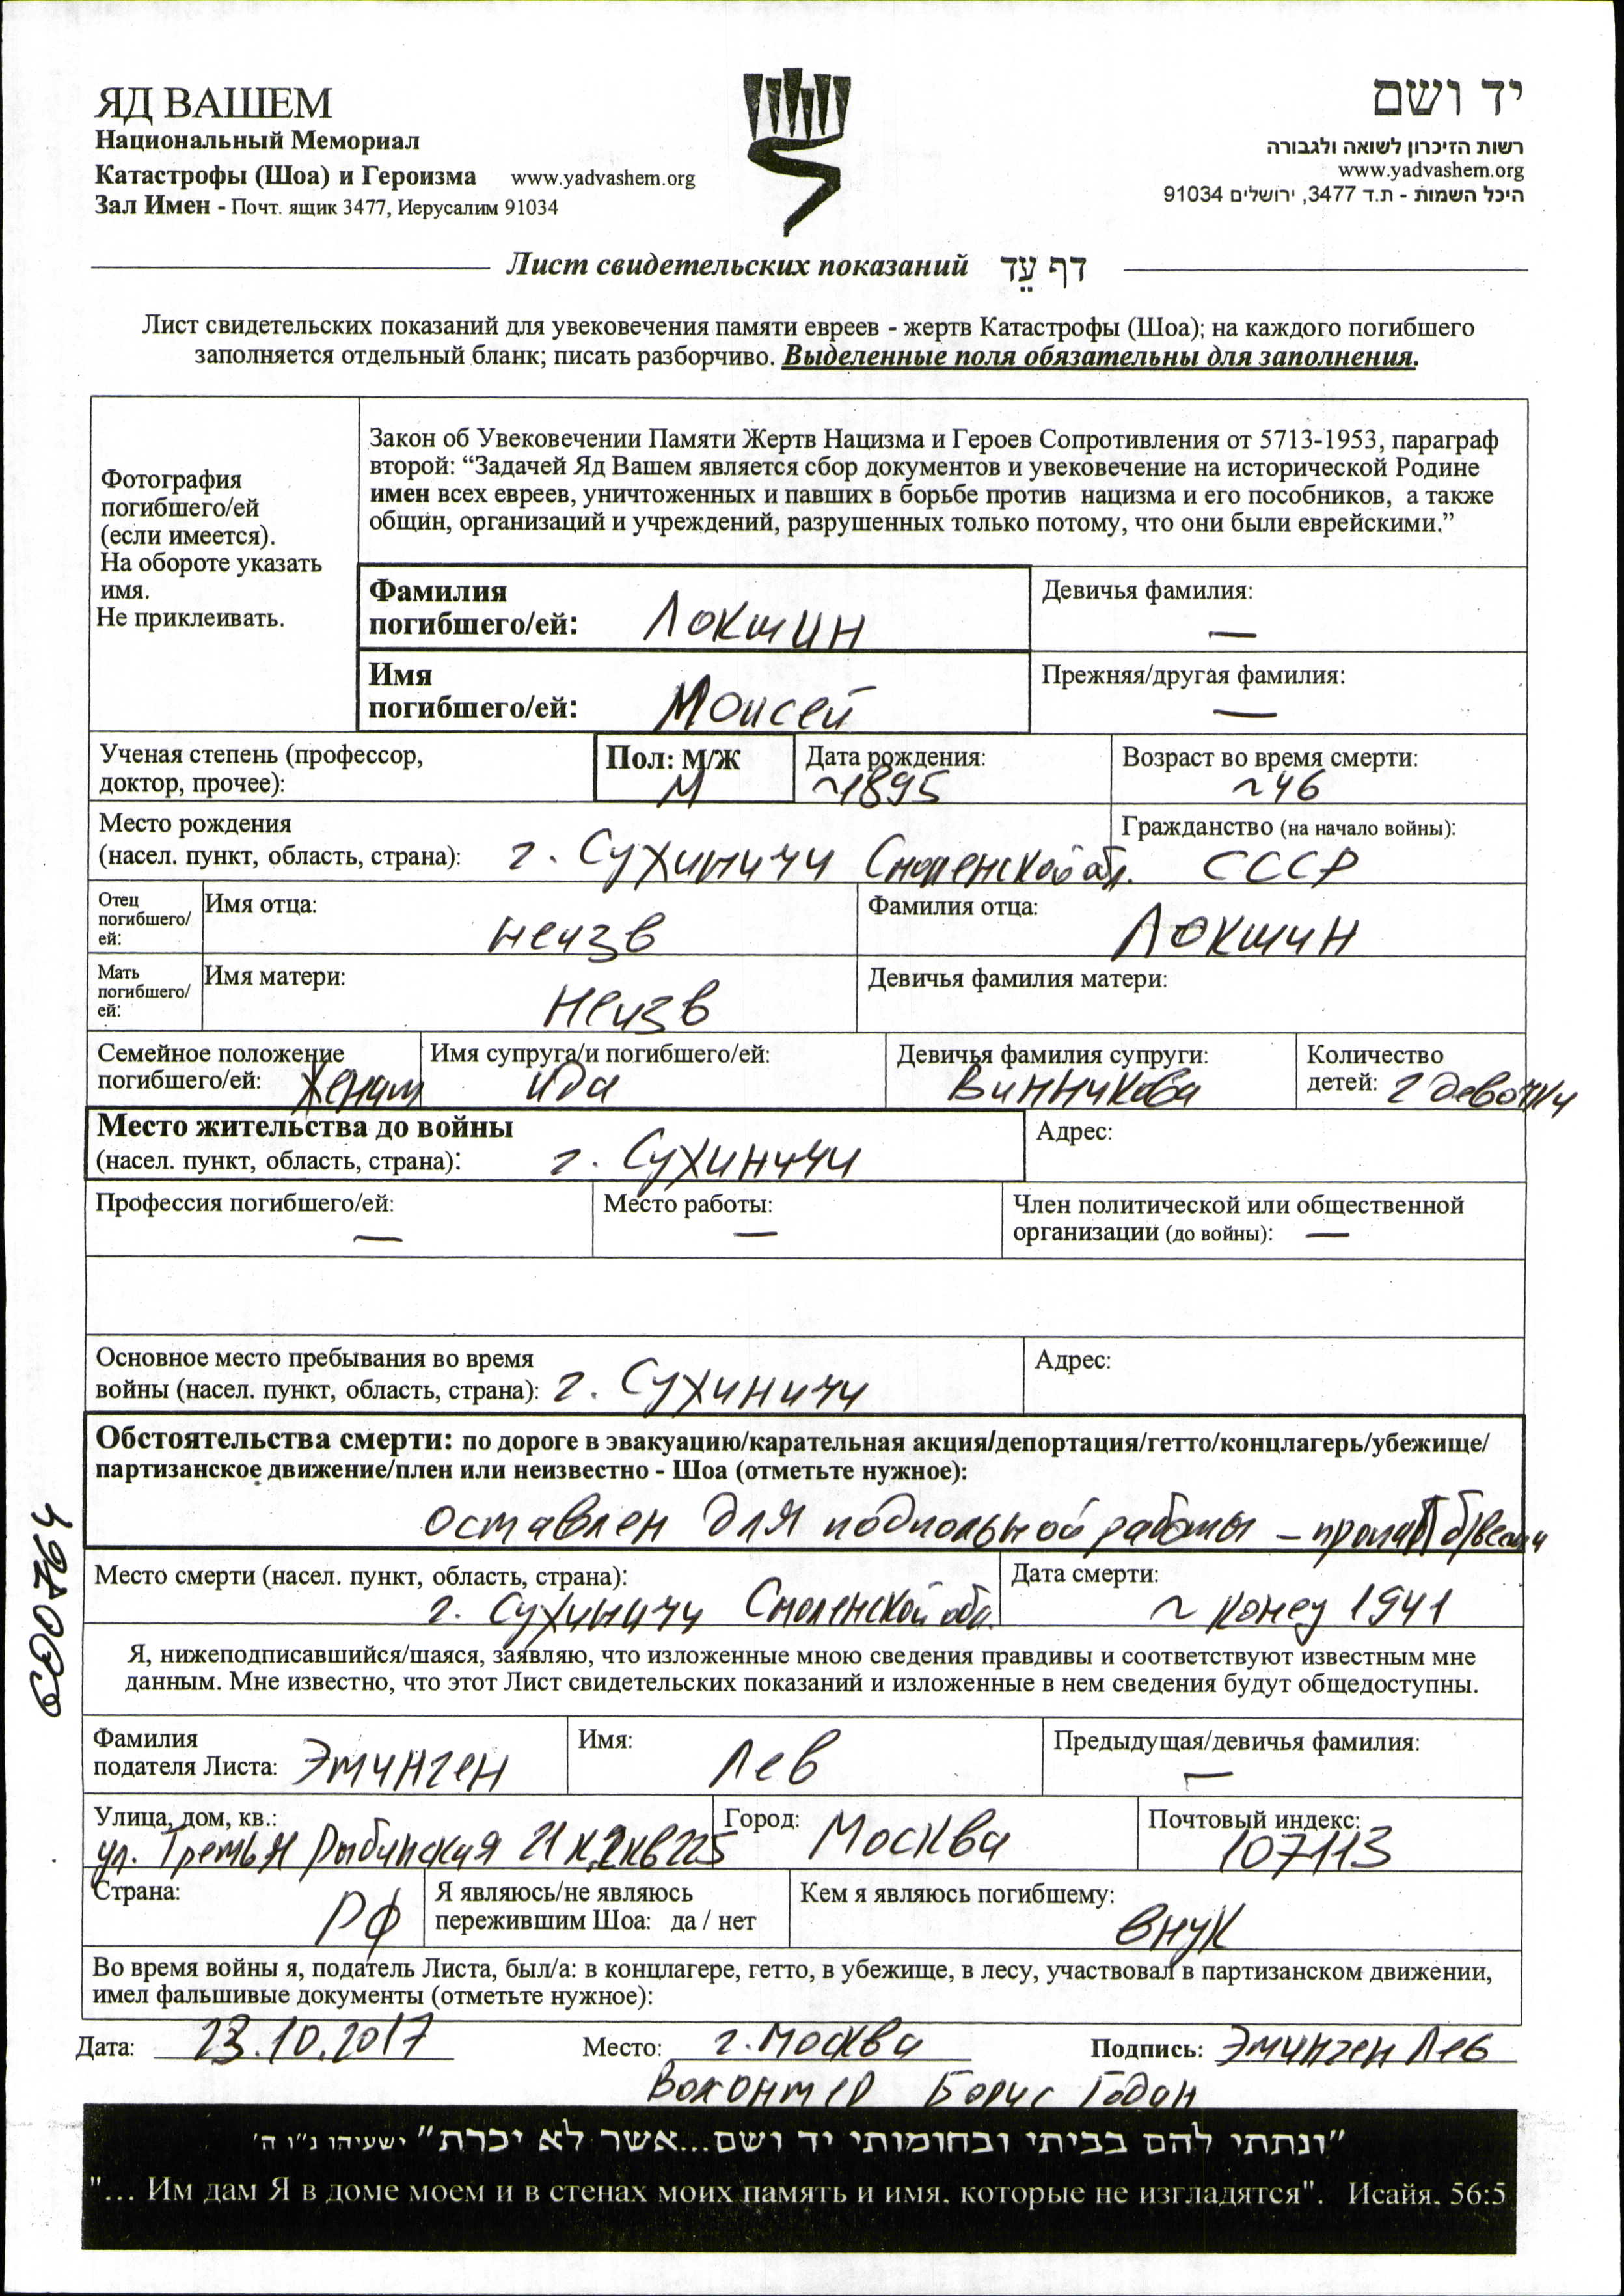 ЯД ВАШЕМ
Национальный Мемориал
Катастрофы (Шоа) и Героизма www.yadvashem.org
Зал Имен - Почт. ящик 3477, Иерусалим 91034
יד ושם
רשות הזיכרון לשואה ולגבורה
www.yadvashem.org
היכל השמות - ת.ד 3477, ירושלים 91034
Лист свидетельских показаний דף עֵד
Лист свидетельских показаний для увековечения памяти евреев - жертв Катастрофы (Шоа); на каждого погибшего
заполняется отдельный бланк; писать разборчиво. Выделенные поля обязательны для заполнения.
Фотография
погибшего/ей
(если имеется).
На обороте указать
имя.
Не приклеивать.
Закон об Увековечении Памяти Жертв Нацизма и Героев Сопротивления от 5713-1953, параграф
второй: “Задачей Яд Вашем является сбор документов и увековечение на исторической Родине
имен всех евреев, уничтоженных и павших в борьбе против нацизма и его пособников, а также
общин, организаций и учреждений, разрушенных только потому, что они были еврейскими.”
Фамилия
погибшего/ей: Локшин
Девичья фамилия:
—
Имя
погибшего/ей: Моисей
Прежняя/другая фамилия:
—
Ученая степень (профессор,
доктор, прочее):
Пол: М/Ж
М
Дата рождения:
~1895
Возраст во время смерти:
~46
Место рождения
(насел. пункт, область, страна): г. Сухиничи Смоленской обл.
Гражданство (на начало войны):
СССР
Отец
погибшего/
ей:
Имя отца:
неизв
Фамилия отца:
Локшин
Мать
погибшего/
ей:
Имя матери:
Неизв
Девичья фамилия матери:
Семейное положение
погибшего/ей: Женат
Имя супруга/и погибшего/ей:
Ида
Девичья фамилия супруги:
Винникова
Количество
детей: 2 девочки
Место жительства до войны
(насел. пункт, область, страна): г. Сухиничи
Адрес:
Профессия погибшего/ей:
—
Место работы:
—
Член политической или общественной
организации (до войны): —
Основное место пребывания во время
войны (насел. пункт, область, страна): г. Сухиничи
Адрес:
Обстоятельства смерти: по дороге в эвакуацию/карательная акция/депортация/гетто/концлагерь/убежище/
партизанское движение/плен или неизвестно - Шоа (отметьте нужное):
оставлен для подпольной работы – пропал б/вести
Место смерти (насел. пункт, область, страна):
г. Сухиничи Смоленской обл.
Дата смерти:
~ конец 1941
600764
Я, нижеподписавшийся/шаяся, заявляю, что изложенные мною сведения правдивы и соответствуют известным мне
данным. Мне известно, что этот Лист свидетельских показаний и изложенные в нем сведения будут общедоступны.
Фамилия
подателя Листа: Эминген
Имя:
Лев
Предыдущая/девичья фамилия:
—
Улица, дом, кв.:
ул. Третья Рыбинская 21 к.2 кв 225
Город: Москва
Почтовый индекс:
107113
Страна:
РФ
Я являюсь/не являюсь
пережившим Шоа: да / нет
Кем я являюсь погибшему:
внук
Во время войны я, податель Листа, был/а: в концлагере, гетто, в убежище, в лесу, участвовал в партизанском движении,
имел фальшивые документы (отметьте нужное):
Дата: 23.10.2017 Место: г. Москва Подпись: Эминген Лев
Волонтер Борис Годин
"ונתתי להם בביתי ובחומותי יד ושם...אשר לא יכרת" ישעיהו נ"ו ה'
"... Им дам Я в доме моем и в стенах моих память и имя, которые не изгладятся". Исайя, 56:5